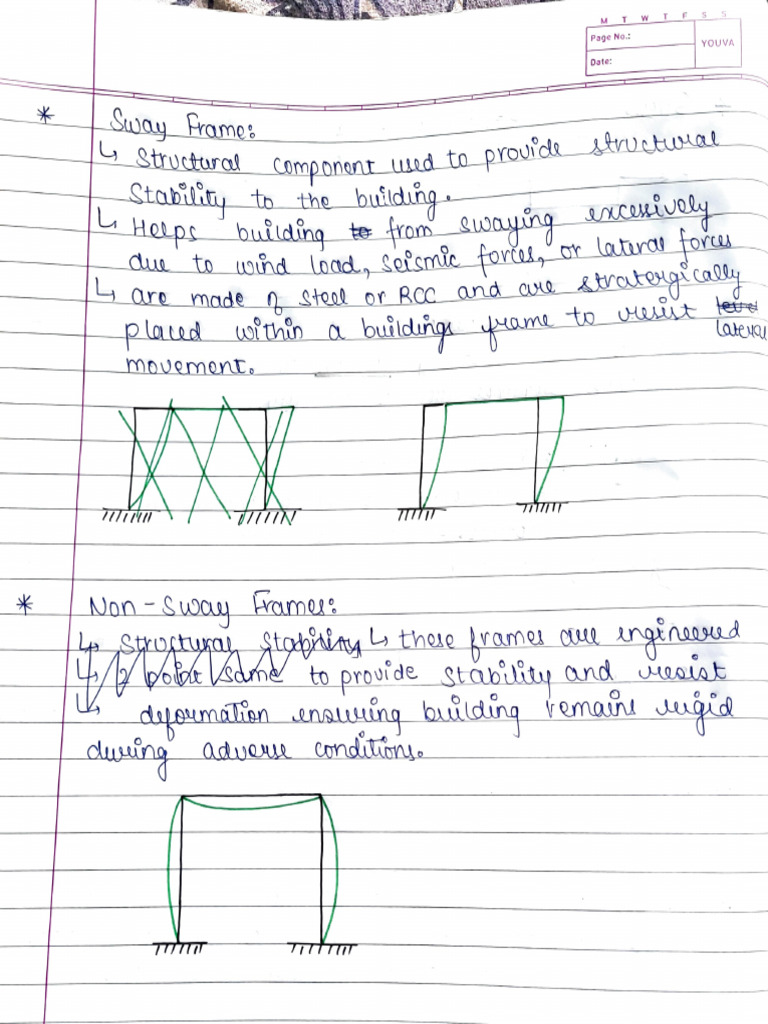 M T W T F S S
Page No.:
YOUVA
Date:
* Sway Frame:
↳ Structural component used to provide structural
Stability to the building.
↳ Helps building to from swaying excessively
due to wind load, seismic forces, or lateral forces
↳ are made of steel or RCC and are stratergically
placed within a buildings frame to resist level
lateral
movement.
* Non-Sway Frames:
↳ Structural Stability ↳ these frames are engineered
↳ 2 point same to provide stability and resist
↳ deformation ensuring building remains rigid
during adverse conditions.